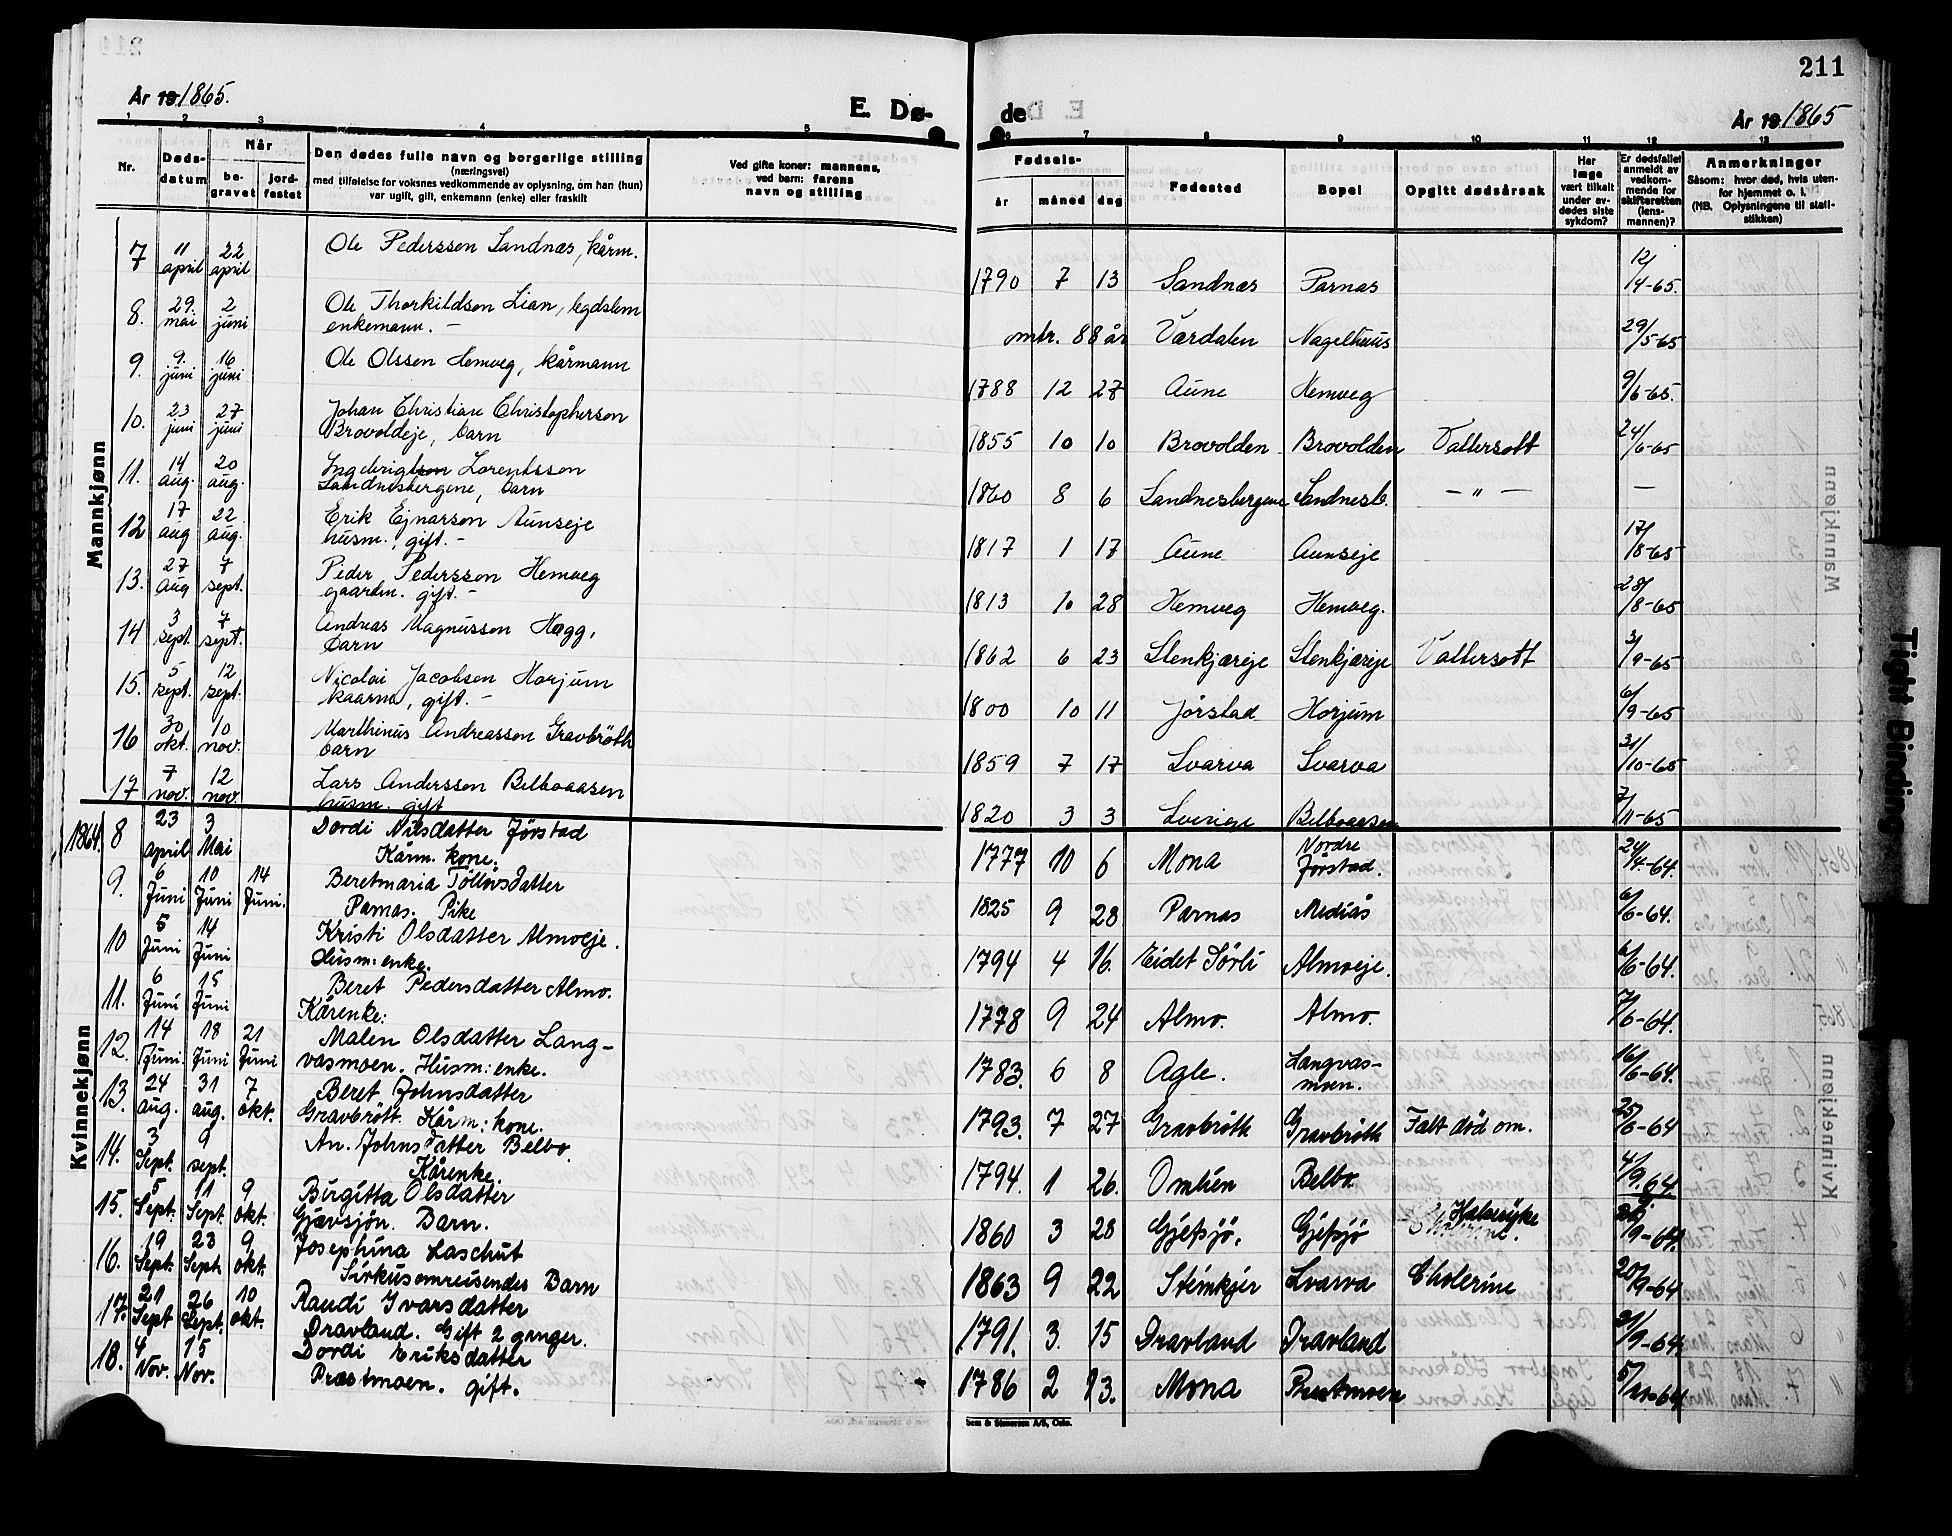 211
År 19 1865.
E. Dø-
de
År 19 1865
1 2 3 4 5
6 7 8 9 10 11 12 13
Nr.
Døds-
datum
Når
be-
gravet
jord-
festet
Den dødes fulle navn og borgerlige stilling
(næringsvei)
med tilføielse for voksnes vedkommende av oplysning, om han (hun)
var ugift, gift, enkemann (enke) eller fraskilt
Ved gifte koner: mannens,
ved barn: farens
navn og stilling
Fødsels-
år
måned
dag
Fødested
Bopel
Opgitt dødsårsak
Har
læge
vært tilkalt
under av-
dødes siste
sykdom?
Er dødsfallet
anmeldt av
vedkom-
mende for
skifteretten
(lens-
mannen)?
Anmerkninger
Såsom: hvor død, hvis uten-
for hjemmet o. l.
(NB. Oplysningene til stati-
stikken)
Mannkjønn
7 11 april 22 april Ole Pederssen Sandnæs, kårm. 1790 7 13 Sandnæs Parnas 12/4-65.
8. 29. mai 2 juni Ole Thorkildsen Lian, legdslem
enkemann. - omtr. 88 år Værdalen Nagelhuus 29/5-65
9. 9. juni 16 juni Ole Olssen Hemveg, kårmann 1788 12 27 Aune Hemveg 9/6-65.
10. 23 juni 27 juni Johan Christian Christopherson
Brovoldeje, barn 1855 10 10 Brovolden Brovolden Valtersott 24/6-65
11. 14 aug. 20 aug. Ingebrigtson Lorentsson
Sandnesbergene, barn 1860 8 6 Sandnesbergene Sandnesb. - " - -
12 17 aug 22 aug. Erik Ejnarson Aunseje
husm., gift. - 1817 1 17 Aune Aunseje 17/8-65
13. 27 aug 7 sept. Peder Pedersson Hemveg
gaardm. gift. - 1813 10 28 Hemveg Hemveg. 28/8-65
14 3 sept. 7 sept. Andreas Magnusson Hegg,
barn 1862 6 23 Stenkjæreje Stenkjæreje Valtersott 3/9-65
15. 5 sept. 12 sept. Nicolai Jacobsen Horjum
kaarm, gift. - 1800 10 11 Jørstad Horjum 6/9-65
16 30 okt. 10 nov. Marthinus Andreasson Gravbröth
barn 1859 7 17 Svarva Svarva 31/10-65
17 7 nov. 12 nov. Lars Andersson Belboaasen
husm. gift 1820 3 3 Sverige Belboaasen 7/11-65
Kvinnekjønn
1864. 8 23 april 3 Mai Dordi Nilsdatter Jörstad
Kårm. kone. 1777 10 6 Mona Nordre Jörstad. 24/4-64.
9. 6 Juni 10 Juni 14 Juni. Beretmaria Töllövsdatter
Parnas. Pike 1825 9 28 Parnas Mediås 6/6-64.
10 5 Juni 14 Juni Kristi Olsdatter Almoeje.
Husm: enke. 1794 4 16. Eidet Sörli Almoeje. 6/6-64.
11. 6 Juni 15 Juni Beret Pedersdatter Almo.
Kårenke: 1778 9 24 Almo. Almo. 7/6-64.
12. 14 Juni. 18 Juni 21 Juni Malen Olsdatter Lang-
vasmoen. Husm: enke. 1783. 6 8 Agle. Langvas-
moen. 16/6-64.
13. 24 aug. 31 aug. 7 okt. Beret Johnsdatter
Gravbrött. Kårm: kone. 1793. 7 27 Gravbröth Gravbröth Falt död om. 25/8-64
14. 3 Sept. 9 sept. An. Johnsdatter Belbo
Kårenke. 1794. 1 26. Omlien Belbo. 4/9.64.
15. 5 Sept. 11 Sept. 9 okt. Birgitta Olsdatter
Gjævsjön. Barn. 1860 3 28 Gjefsjö. Gjefsjö Halssyke /9-64.
16. 19 Sept. 23 Sept. 9 okt. Josephina Laschut
Sirkusomreisendes Barn 1863 9 22 Steinkjer Svarva Cholerine 20/9-64
17. 21 Sept 26 Sept. 10 okt. Randi Ivarsdatter
Dravland. Gift 2 ganger. 1791. 3. 15 Dravland Dravland 21/9-64.
18. 4 Nov. 15 Nov. Dordi Eriksdatter
Præstmoen. gift. 1786 2 23. Mona Præstmoen 5/11-64
Sem & Stenersen A/S, Oslo.
Tight Binding